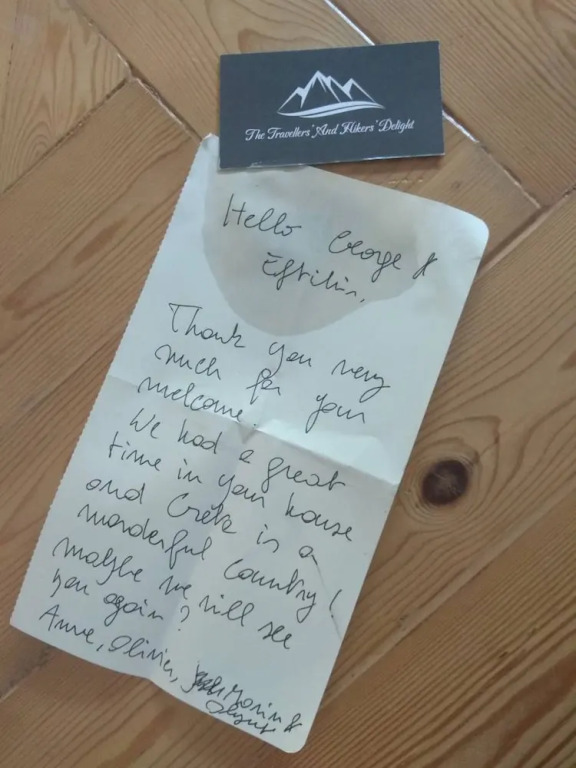 The Travellers' And Hikers' Delight
Hello George &
Eftihia,
Thank you very
much for your
welcome.
We had a great
time in your house
and Crete is a
wonderful country!
maybe we will see
you again?
Anne, Olivier,